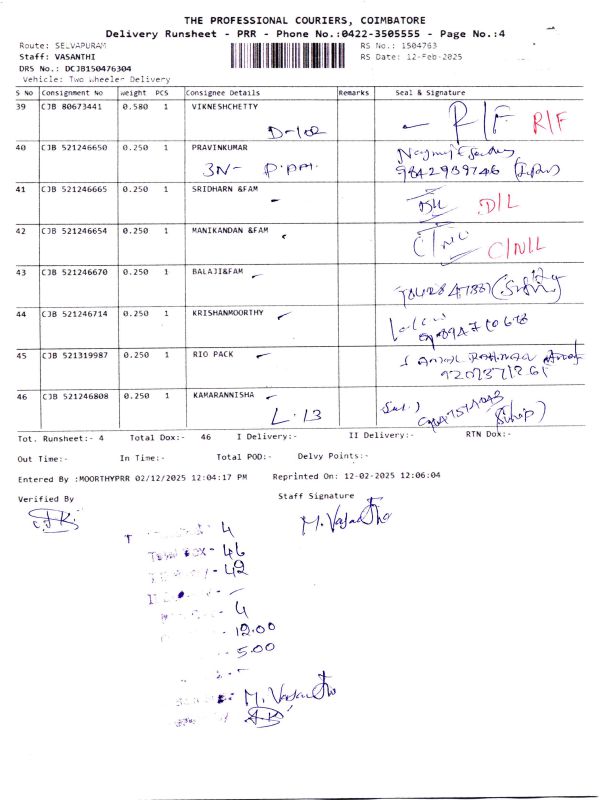 THE PROFESSIONAL COURIERS, COIMBATORE
Delivery Runsheet - PRR - Phone No.:0422-3505555 - Page No.:4
Route: SELVAPURAM RS No.: 1504763
Staff: VASANTHI RS Date: 12-Feb-2025
DRS No.: DCJB150476304
Vehicle: Two Wheeler Delivery
S No Consignment No Weight PCS Consignee Details Remarks Seal & Signature
39 CJB 80673441 0.580 1 VIKNESHCHETTY
D-102 R/F R/F
40 CJB 521246650 0.250 1 PRAVINKUMAR
3N- 9842989746
41 CJB 521246665 0.250 1 SRIDHARN &FAM
D/L D/L
42 CJB 521246654 0.250 1 MANIKANDAN &FAM
C/N/L C/N/L
43 CJB 521246670 0.250 1 BALAJI&FAM
44 CJB 521246714 0.250 1 KRISHANMOORTHY
45 CJB 521319987 0.250 1 RIO PACK
46 CJB 521246808 0.250 1 KAMARANNISHA
L-13
Tot. Runsheet:- 4 Total Dox:- 46 I Delivery:- II Delivery:- RTN Dox:-
Out Time:- In Time:- Total POD:- Delvy Points:-
Entered By :MOORTHYPRR 02/12/2025 12:04:17 PM Reprinted On: 12-02-2025 12:06:04
Verified By Staff Signature
M. Vasantha
4
46
42
4
12.00
5.00
M. Vasantha